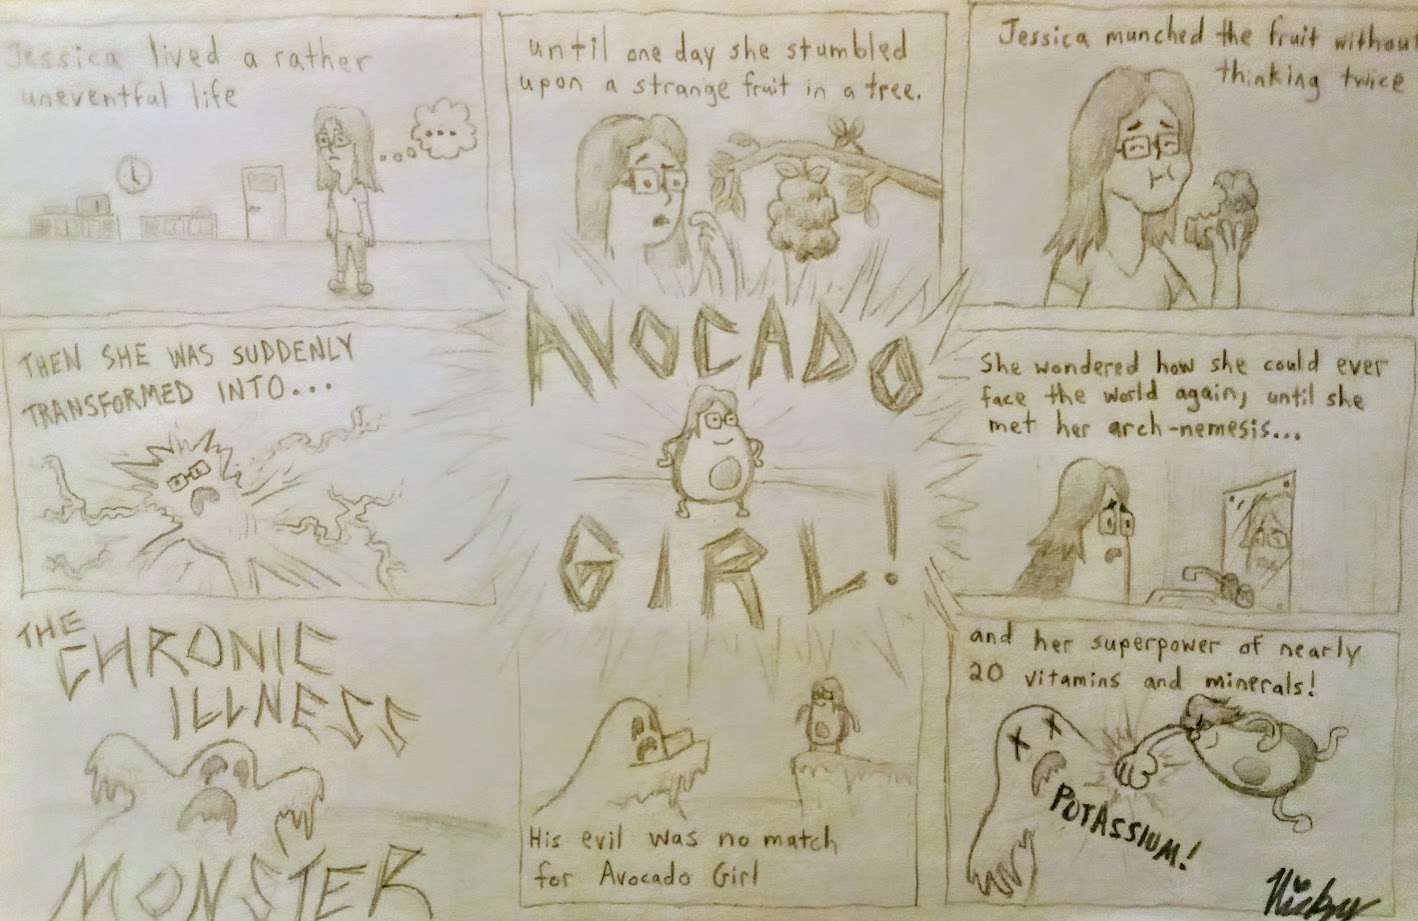 Jessica lived a rather
uneventful life
...
until one day she stumbled
upon a strange fruit in a tree.
Jessica munched the fruit without
thinking twice
THEN SHE WAS SUDDENLY
TRANSFORMED INTO...
AVOCADO
GIRL!
She wondered how she could ever
face the world again, until she
met her arch-nemesis...
THE
CHRONIC
ILLNESS
MONSTER
His evil was no match
for Avocado Girl
and her superpower of nearly
20 vitamins and minerals!
POTASSIUM!